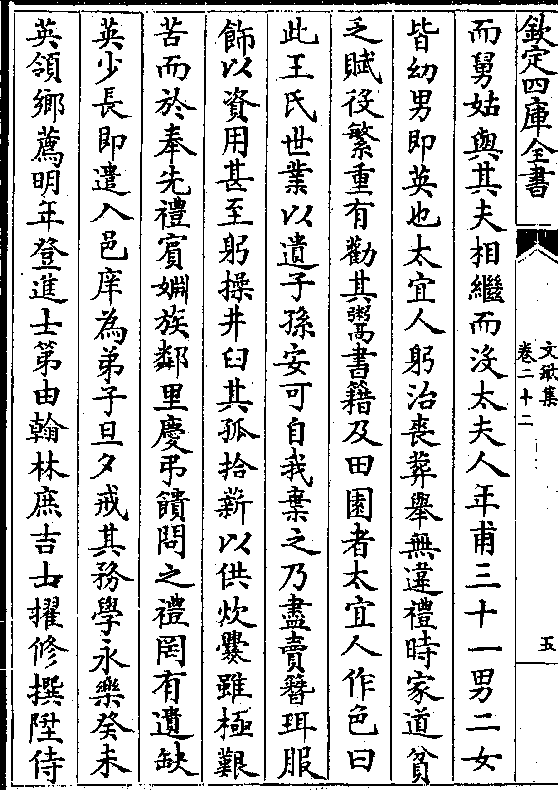 欽定四庫全書
文敏集
卷二十二
五
而舅姑與其夫相繼而没太夫人年甫三十一男二女
皆幼男即英也太宜人躬治喪葬舉無違禮時家道貧
乏賦役繁重有勸其鬻書籍及田園者太宜人作色曰
此王氏世業以遺子孫安可自我棄之乃盡賣簪珥服
飾以資用甚至躬操井臼其孤拾薪以供炊爨雖極艱
苦而於奉先禮賓婣族鄰里慶弔饋問之禮罔有遺缺
英少長即遣入邑庠為弟子旦夕戒其務學永樂癸未
英領鄉薦明年登進士第由翰林庶吉士擢修撰陞侍